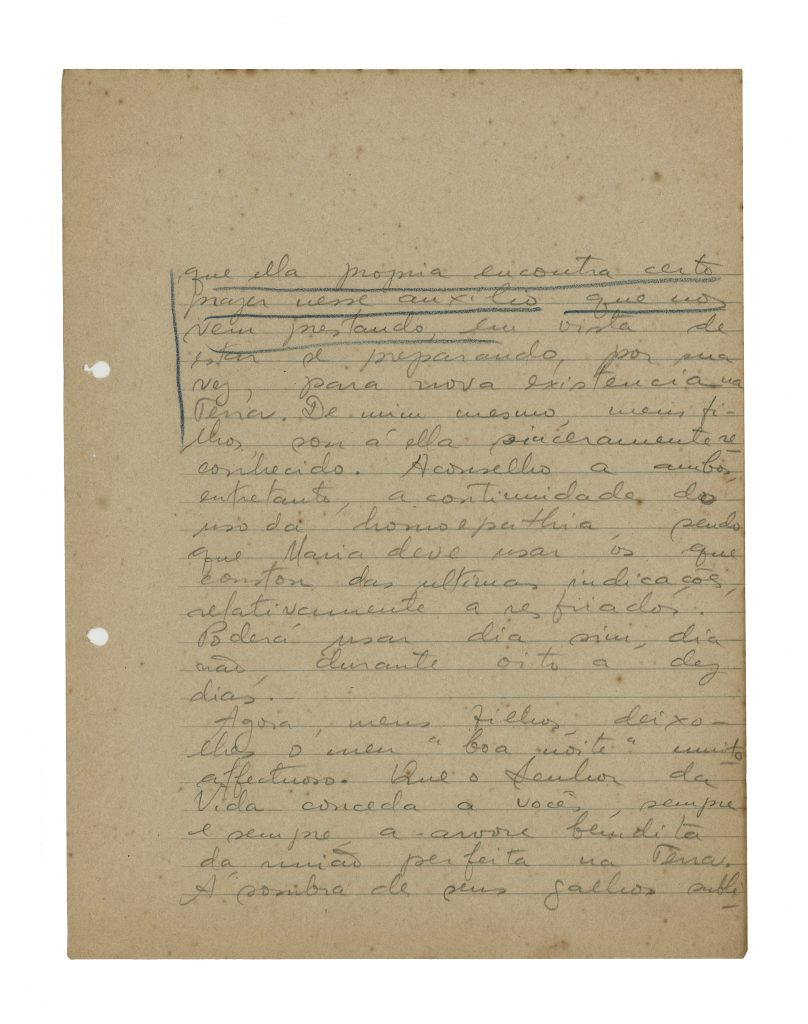 que ella propria encontra certo
prazer nesse auxilio que nos
vem prestando, em vista de
estar se preparando, por sua
vez, para nova existencia na
Terra. De mim mesmo, meus fi-
lhos, sou á ella sinceramente re-
conhecido. Aconselho a ambos,
entretanto, a continuidade do
uso da homoepathia, sendo
que Maria deve usar os que
constou das ultimas indicações,
relativamente a resfriados.
Poderá usar dia sim, dia
não, durante oito a dez
dias.
Agora, meus filhos, deixo-
lhes o meu "boa noite" muito
affectuoso. Que o Senhor da
Vida conceda a vocês, sempre
e sempre, a arvore bemdita
da união perfeita na Terra.
Á sombra de seus galhos subli-